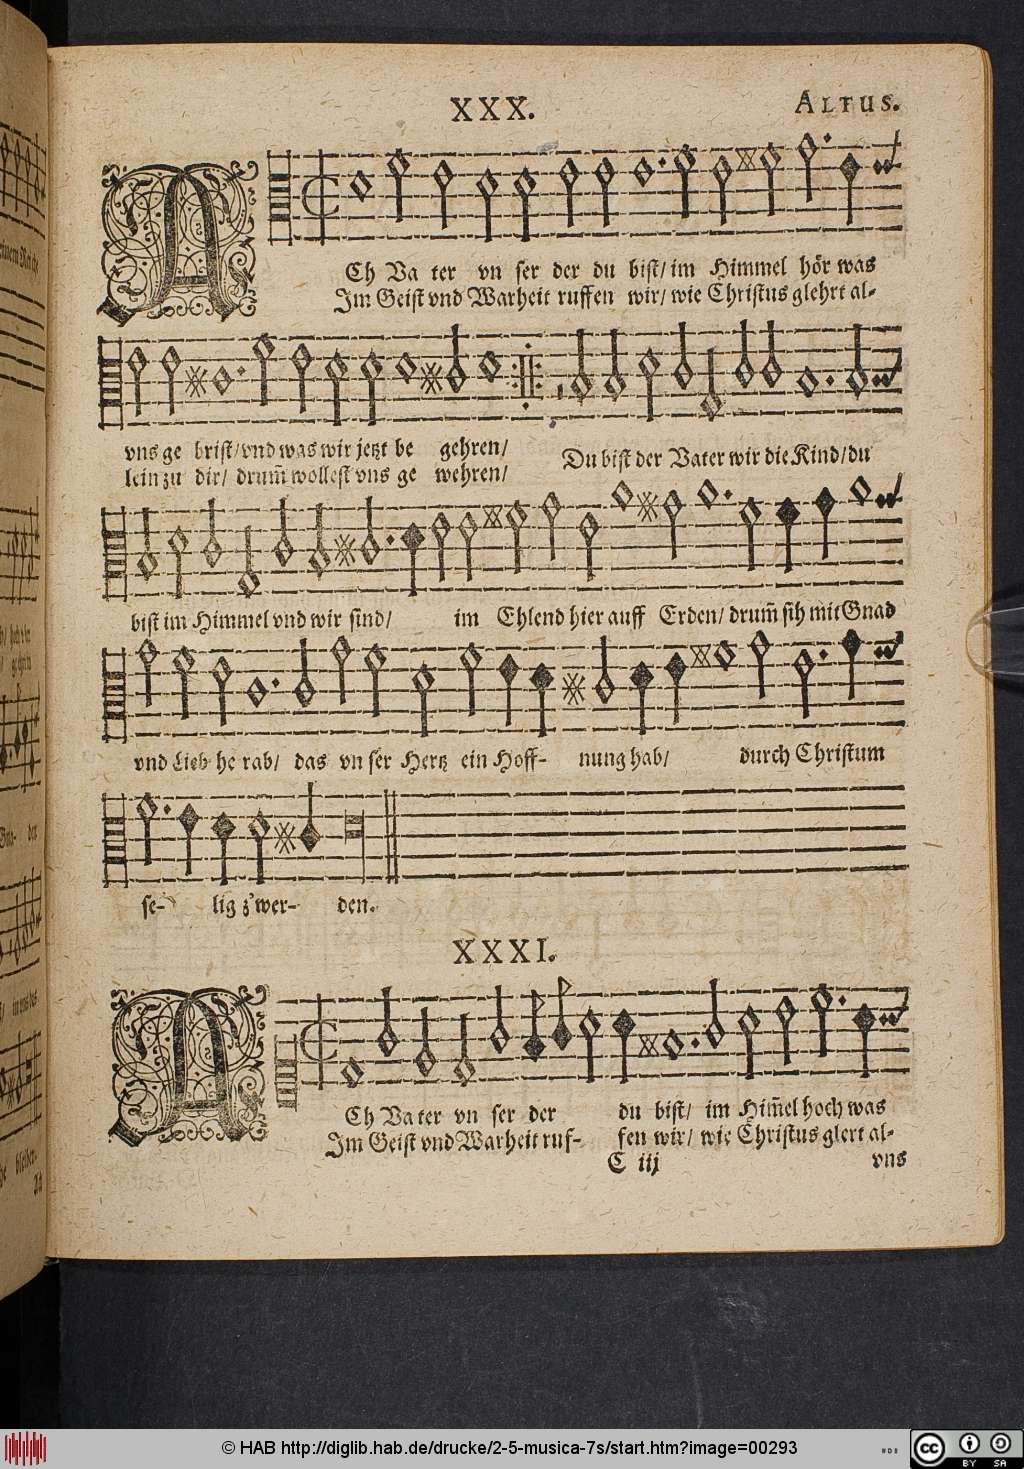 XXX.
ALTUS.
ACh Va ter vn ser der du bist/ im Himmel hör was
Im Geist vnd Warheit ruffen wir/ wie Christus glehrt al-
vns ge brist/ vnd was wir jetzt be gehren/
lein zu dir/ drum̃ wollest vns ge wehren/
Du bist der Vater wir die Kind/ du
bist im Himmel vnd wir sind/ im Ehlend hier auff Erden/ drum̃ sih mit Gnad
vnd Lieb he rab/ das vn ser Hertz ein Hoff- nung hab/ durch Christum
se- lig z'wer- den.
XXXI.
ACh Va ter vn ser der du bist/ im Him̃el hoch was
Im Geist vnd Warheit ruf- fen wir/ wie Christus glert al-
C iij
vns
© HAB http://diglib.hab.de/drucke/2-5-musica-7s/start.htm?image=00293
cc BY SA